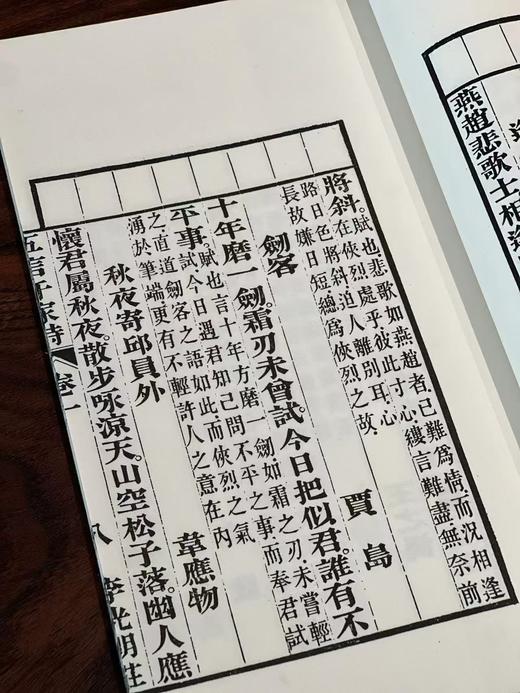 燕趙悲歌士相逢
將斜。賦也。悲歌如燕趙者已難爲情而況相逢
在俠烈處乎彼此寸心縷言難盡無奈前
路日色將斜迫人離別耳心
長故嫌日短總爲俠烈之故
劒客 賈島
十年磨一劒。霜刃未曾試。今日把似君。誰有不
平事。賦也言十年方磨一劍如霜之刃未嘗輕
試今日遇君知己問不平之事而奉君試
之直道劍客之語如此而俠烈之氣
湧於筆端更有不輕許人之意在內
秋夜寄邱員外 韋應物
懷君屬秋夜。散步咏涼天。山空松子落。幽人應
五言千家詩 卷一 八 李光明莊